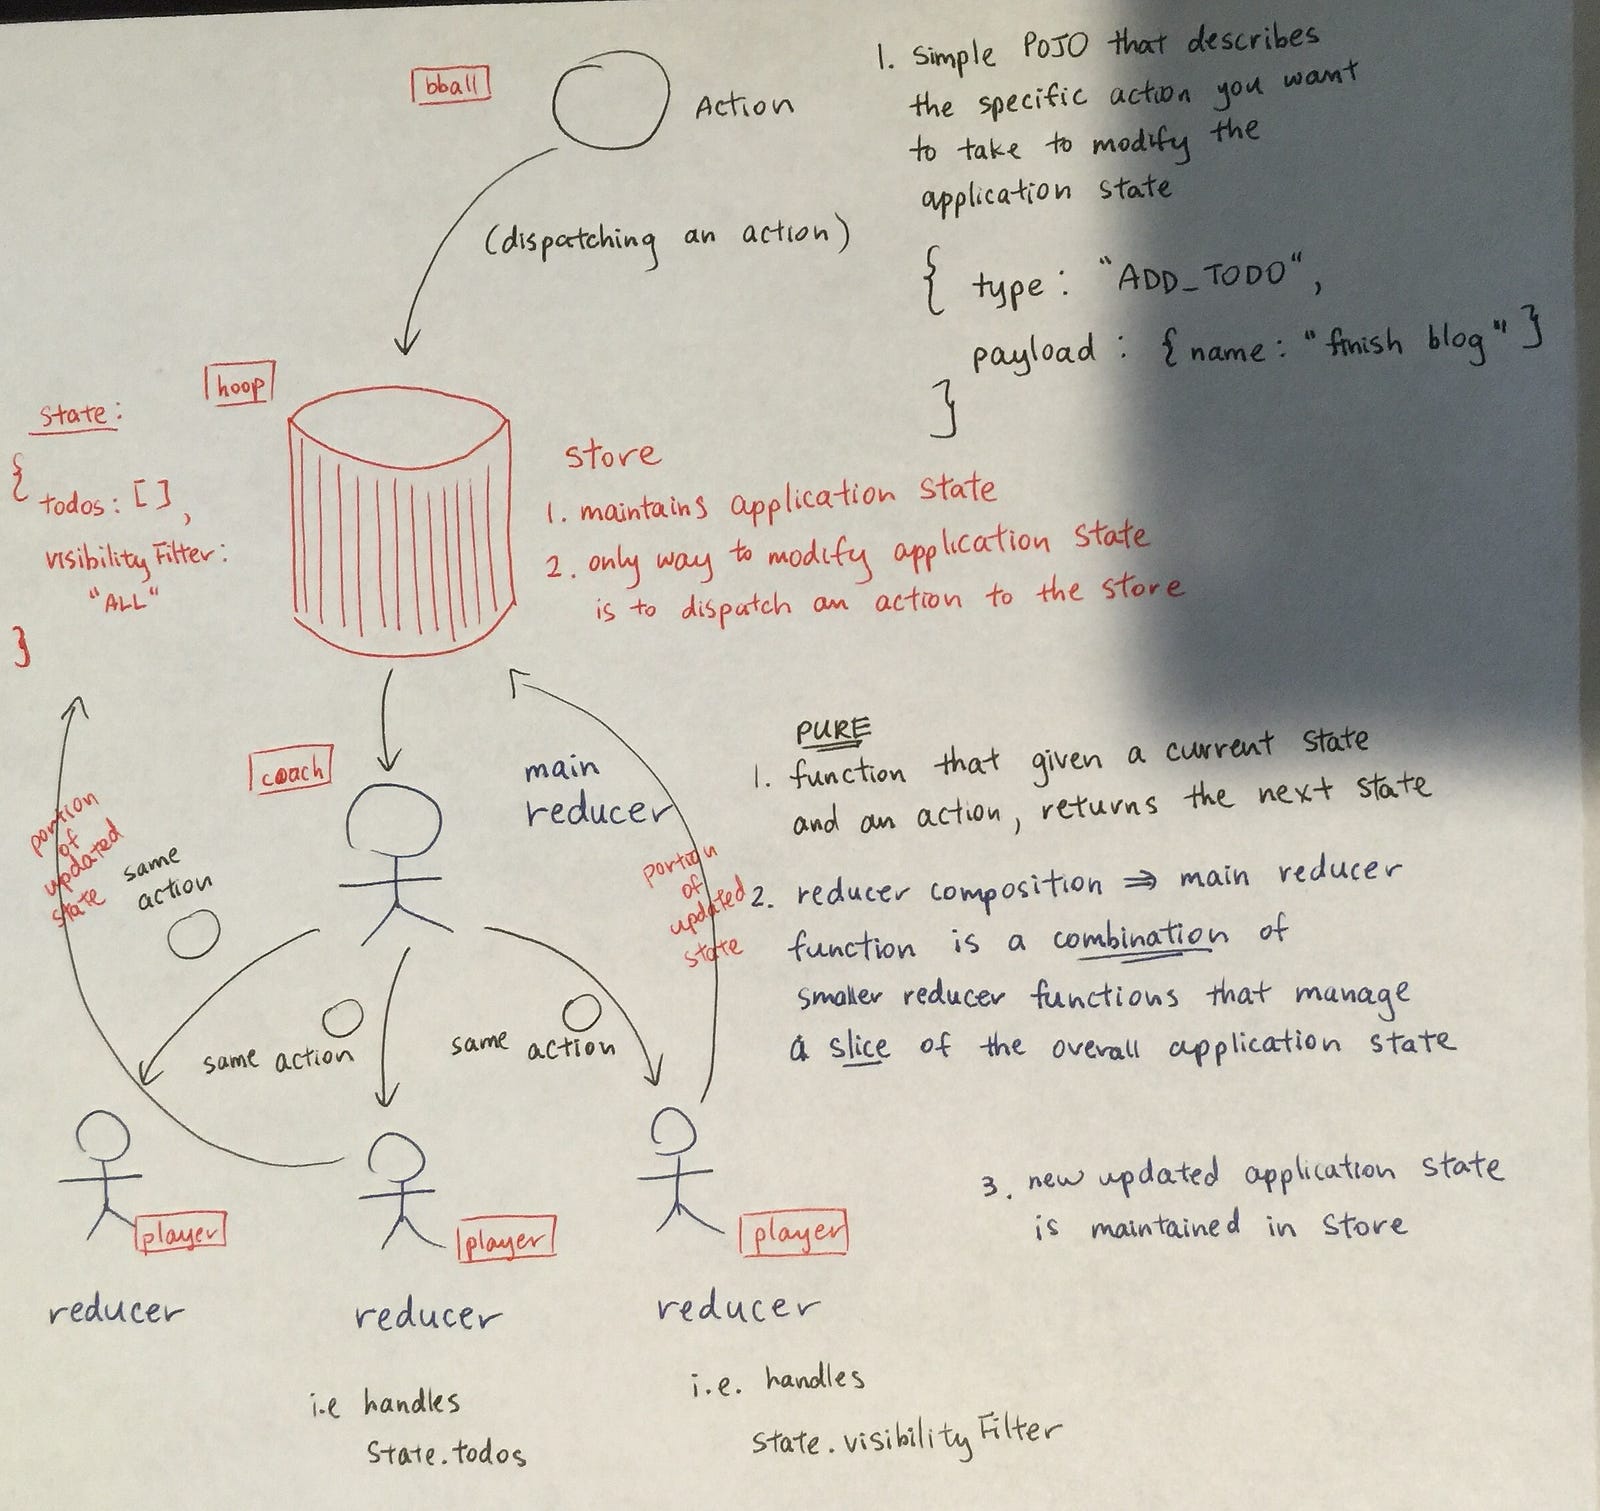 bball
Action
1. simple POJO that describes
the specific action you want
to take to modify the
application state
(dispatching an action)
{ type: "ADD_TODO",
payload: { name: "finish blog" }
}
hoop
state:
{
todos: [ ],
visibility Filter:
"ALL"
}
store
1. maintains application state
2. only way to modify application state
is to dispatch an action to the store
coach
main
reducer
PURE
1. function that given a current state
and an action, returns the next state
2. reducer composition ⇒ main reducer
function is a combination of
smaller reducer functions that manage
a slice of the overall application state
3. new updated application state
is maintained in store
portion
of
updated
state
same
action
same action
same action
portion
of
updated
state
player
player
player
reducer
reducer
reducer
i.e handles
State.todos
i.e. handles
state.visibilityFilter